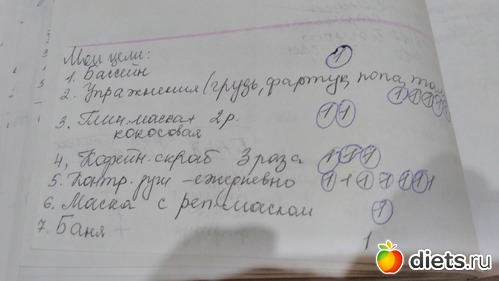 Мои цели:
1. Бассейн 1
2. Упражнения (грудь, фартук, попа, тал
1 1 1 1
3. Глин. маска 2 р. 1 1
кокосовая
4. Кофейн. скраб 3 раза 1 1 1
5. Контр. душ - ежедневно 1 1 1 1 1 1 1
6. Маска с реп. маслом 1
7. Баня 1
diets.ru